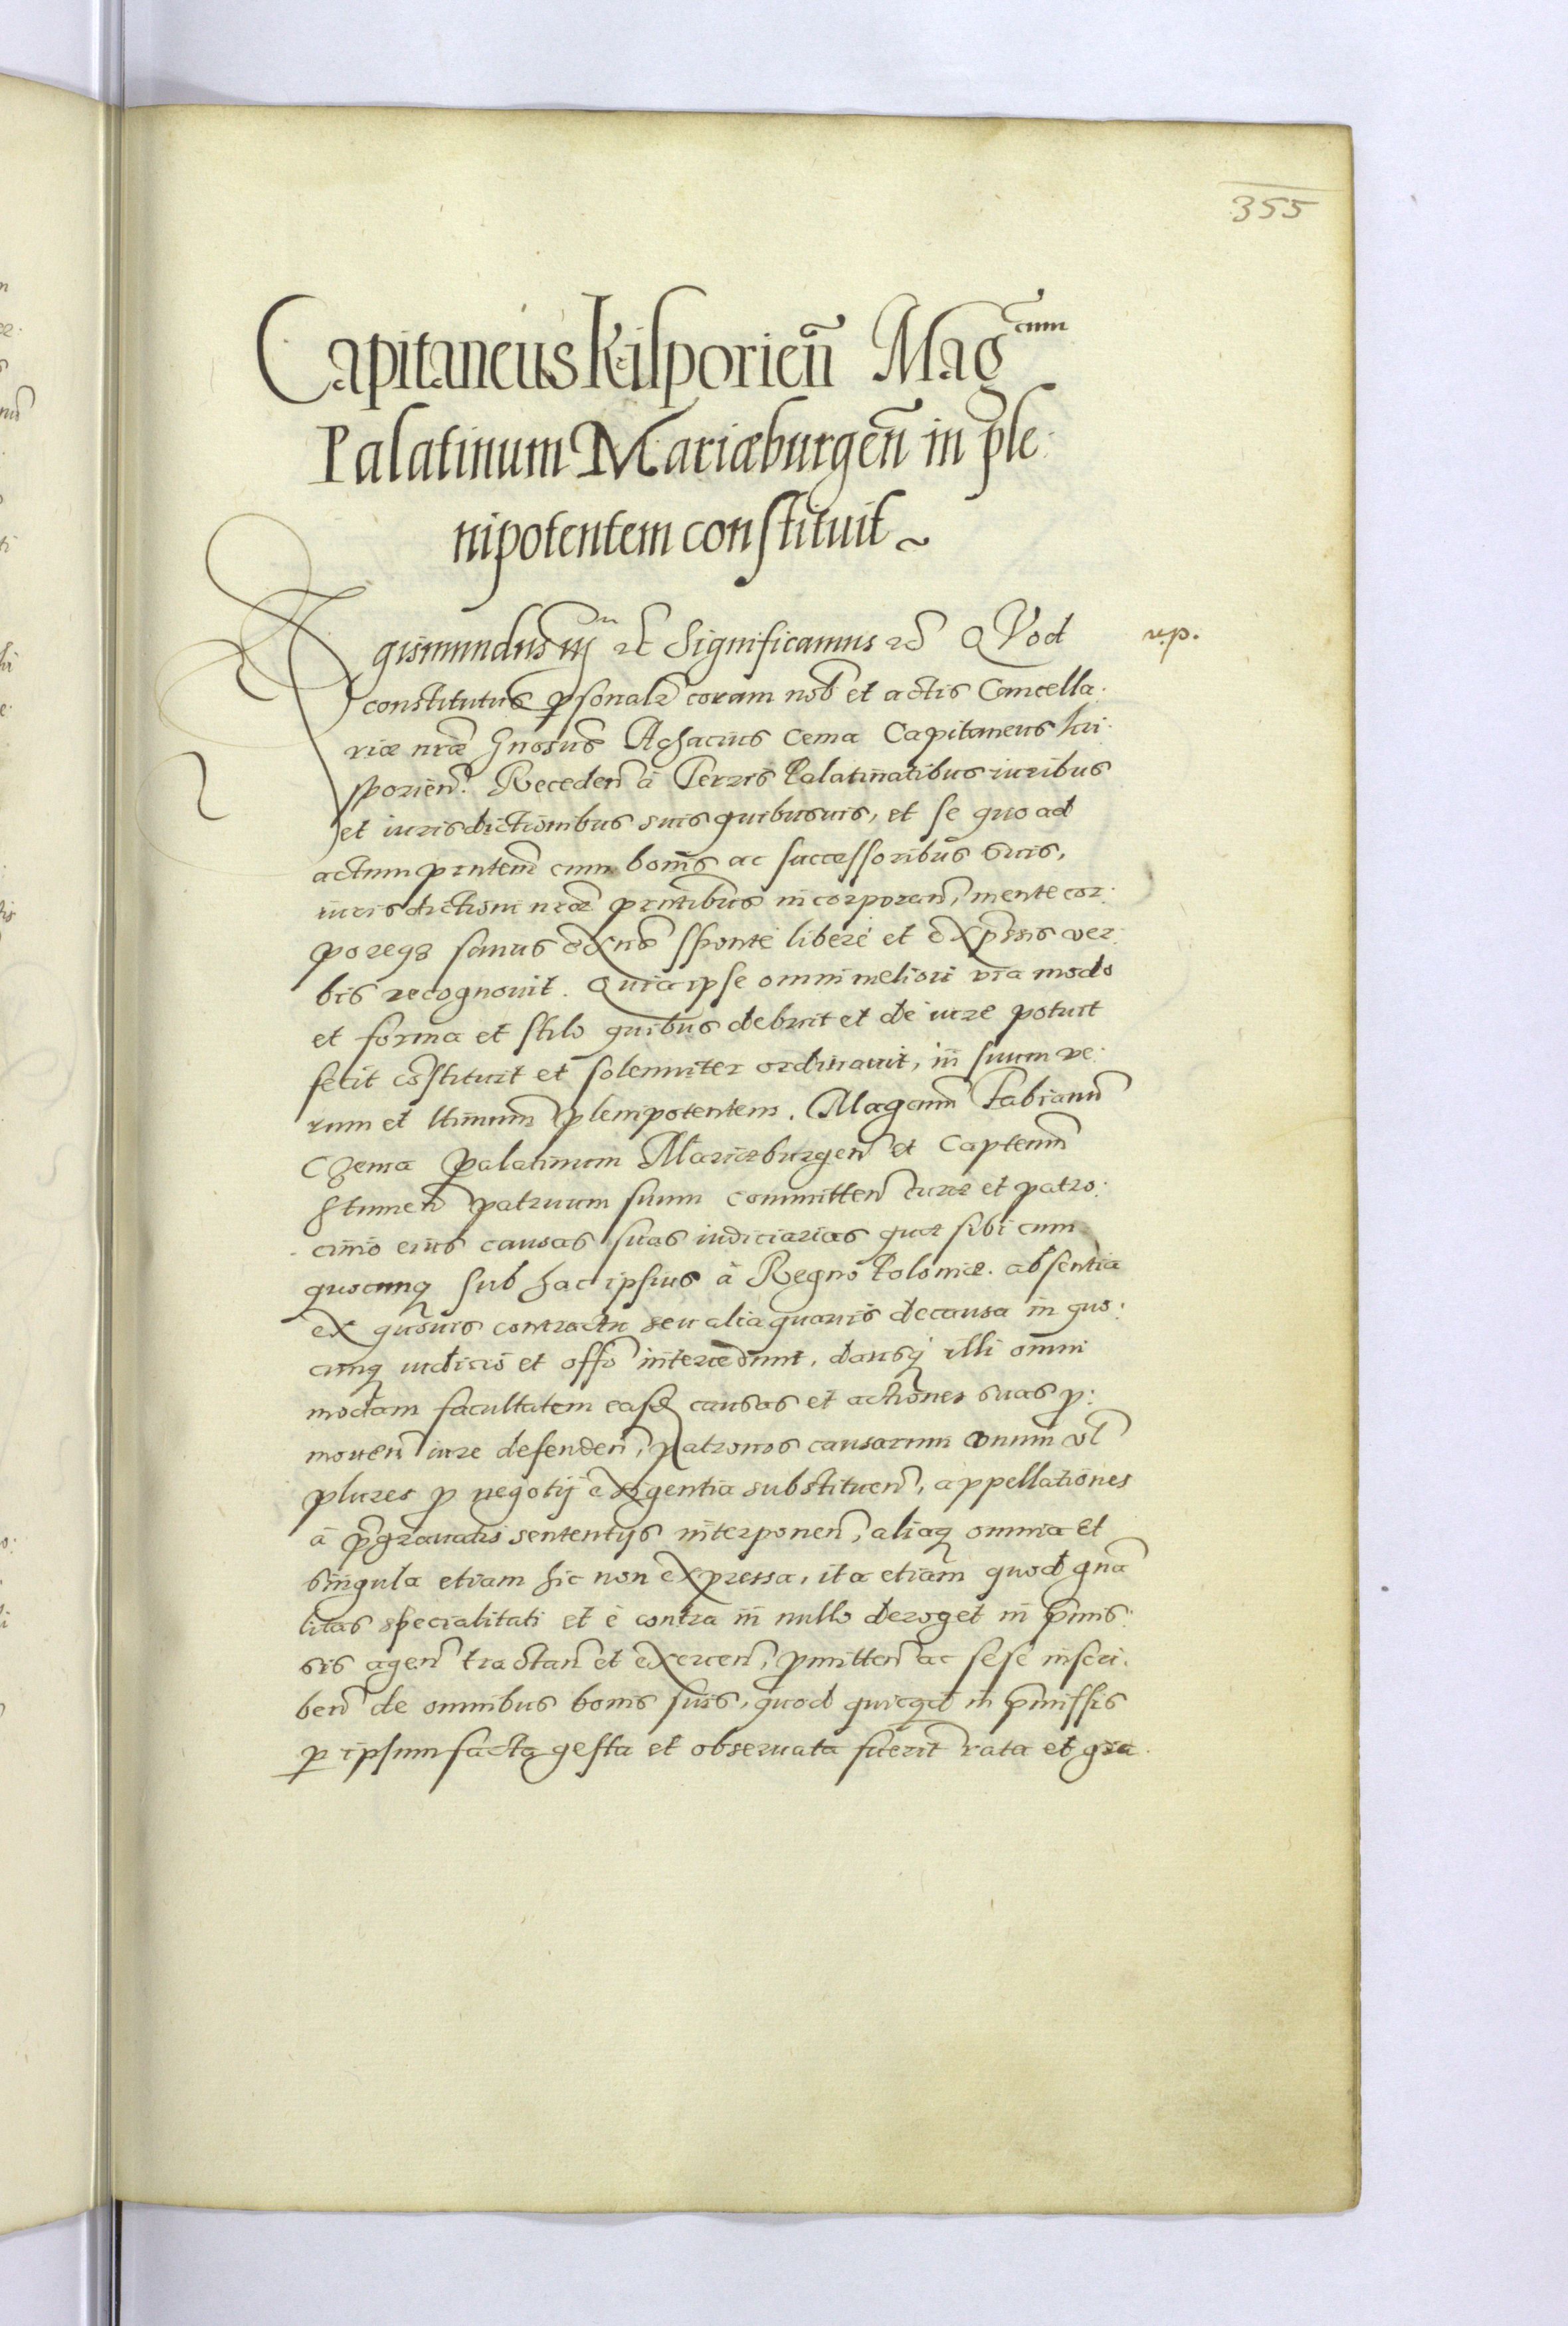 355
Capitaneus Kisporieñ Mag^cum
Palatinum Mariæburgeñ in ple:
nipotentem constituit
Sigismundus III etc Significamus etc Quod
r.p.
constitutus psonalr coram nob et actis Cancella:
riæ nræ Gnosus Achacius Cema Capitaneus Ki:
sporien. Receden à Terris Palatinatibus iuribus
et iurisdictionibus suis quibusuis, et se quo ad
actum pntem cum bonis ac successoribus suis,
iurisdictioni nræ pntibus incorporan, mente cor:
poreqz sanus exñs sponte libere et expssis ver:
bis recognouit. Quia ipse omni meliori via modo
et forma et stilo quibus debuit et de iure potuit
fecit constituit et solenniter ordinauit, in suum ve:
rum et ltimum plenipotentem. Magcum Fabianum
Czema Palatinum Mariæburgen et Captenm
Stumen patruum suum committen curæ et patro:
cinio eius causas suas iudiciarias quæ sibi cum
quocunqz sub hac ipsius à Regno Poloniæ absentia
ex quouis contractu seu alia quauis de causa in quo:
cunqz iudicio et offo intercedunt, dansqz illi omni
modam facultatem easd causas et actiones suas p:
mouen iure defenden, patronos causarum vnum vl
plures p negotij exigentia substituen, appellationes
à pgrauatis sententijs interponen, aliaqz omnia et
singula etiam hic non expressa, ita etiam quod gna
litas specialitati et è contra in nullo deroget in pmis:
sis agen tractan et exercen, pmitten ac sese inscri:
ben de omnibus bonis suis, quod quicqd in pmissis
p ipsum facta gesta et obseruata fuerit rata et gra